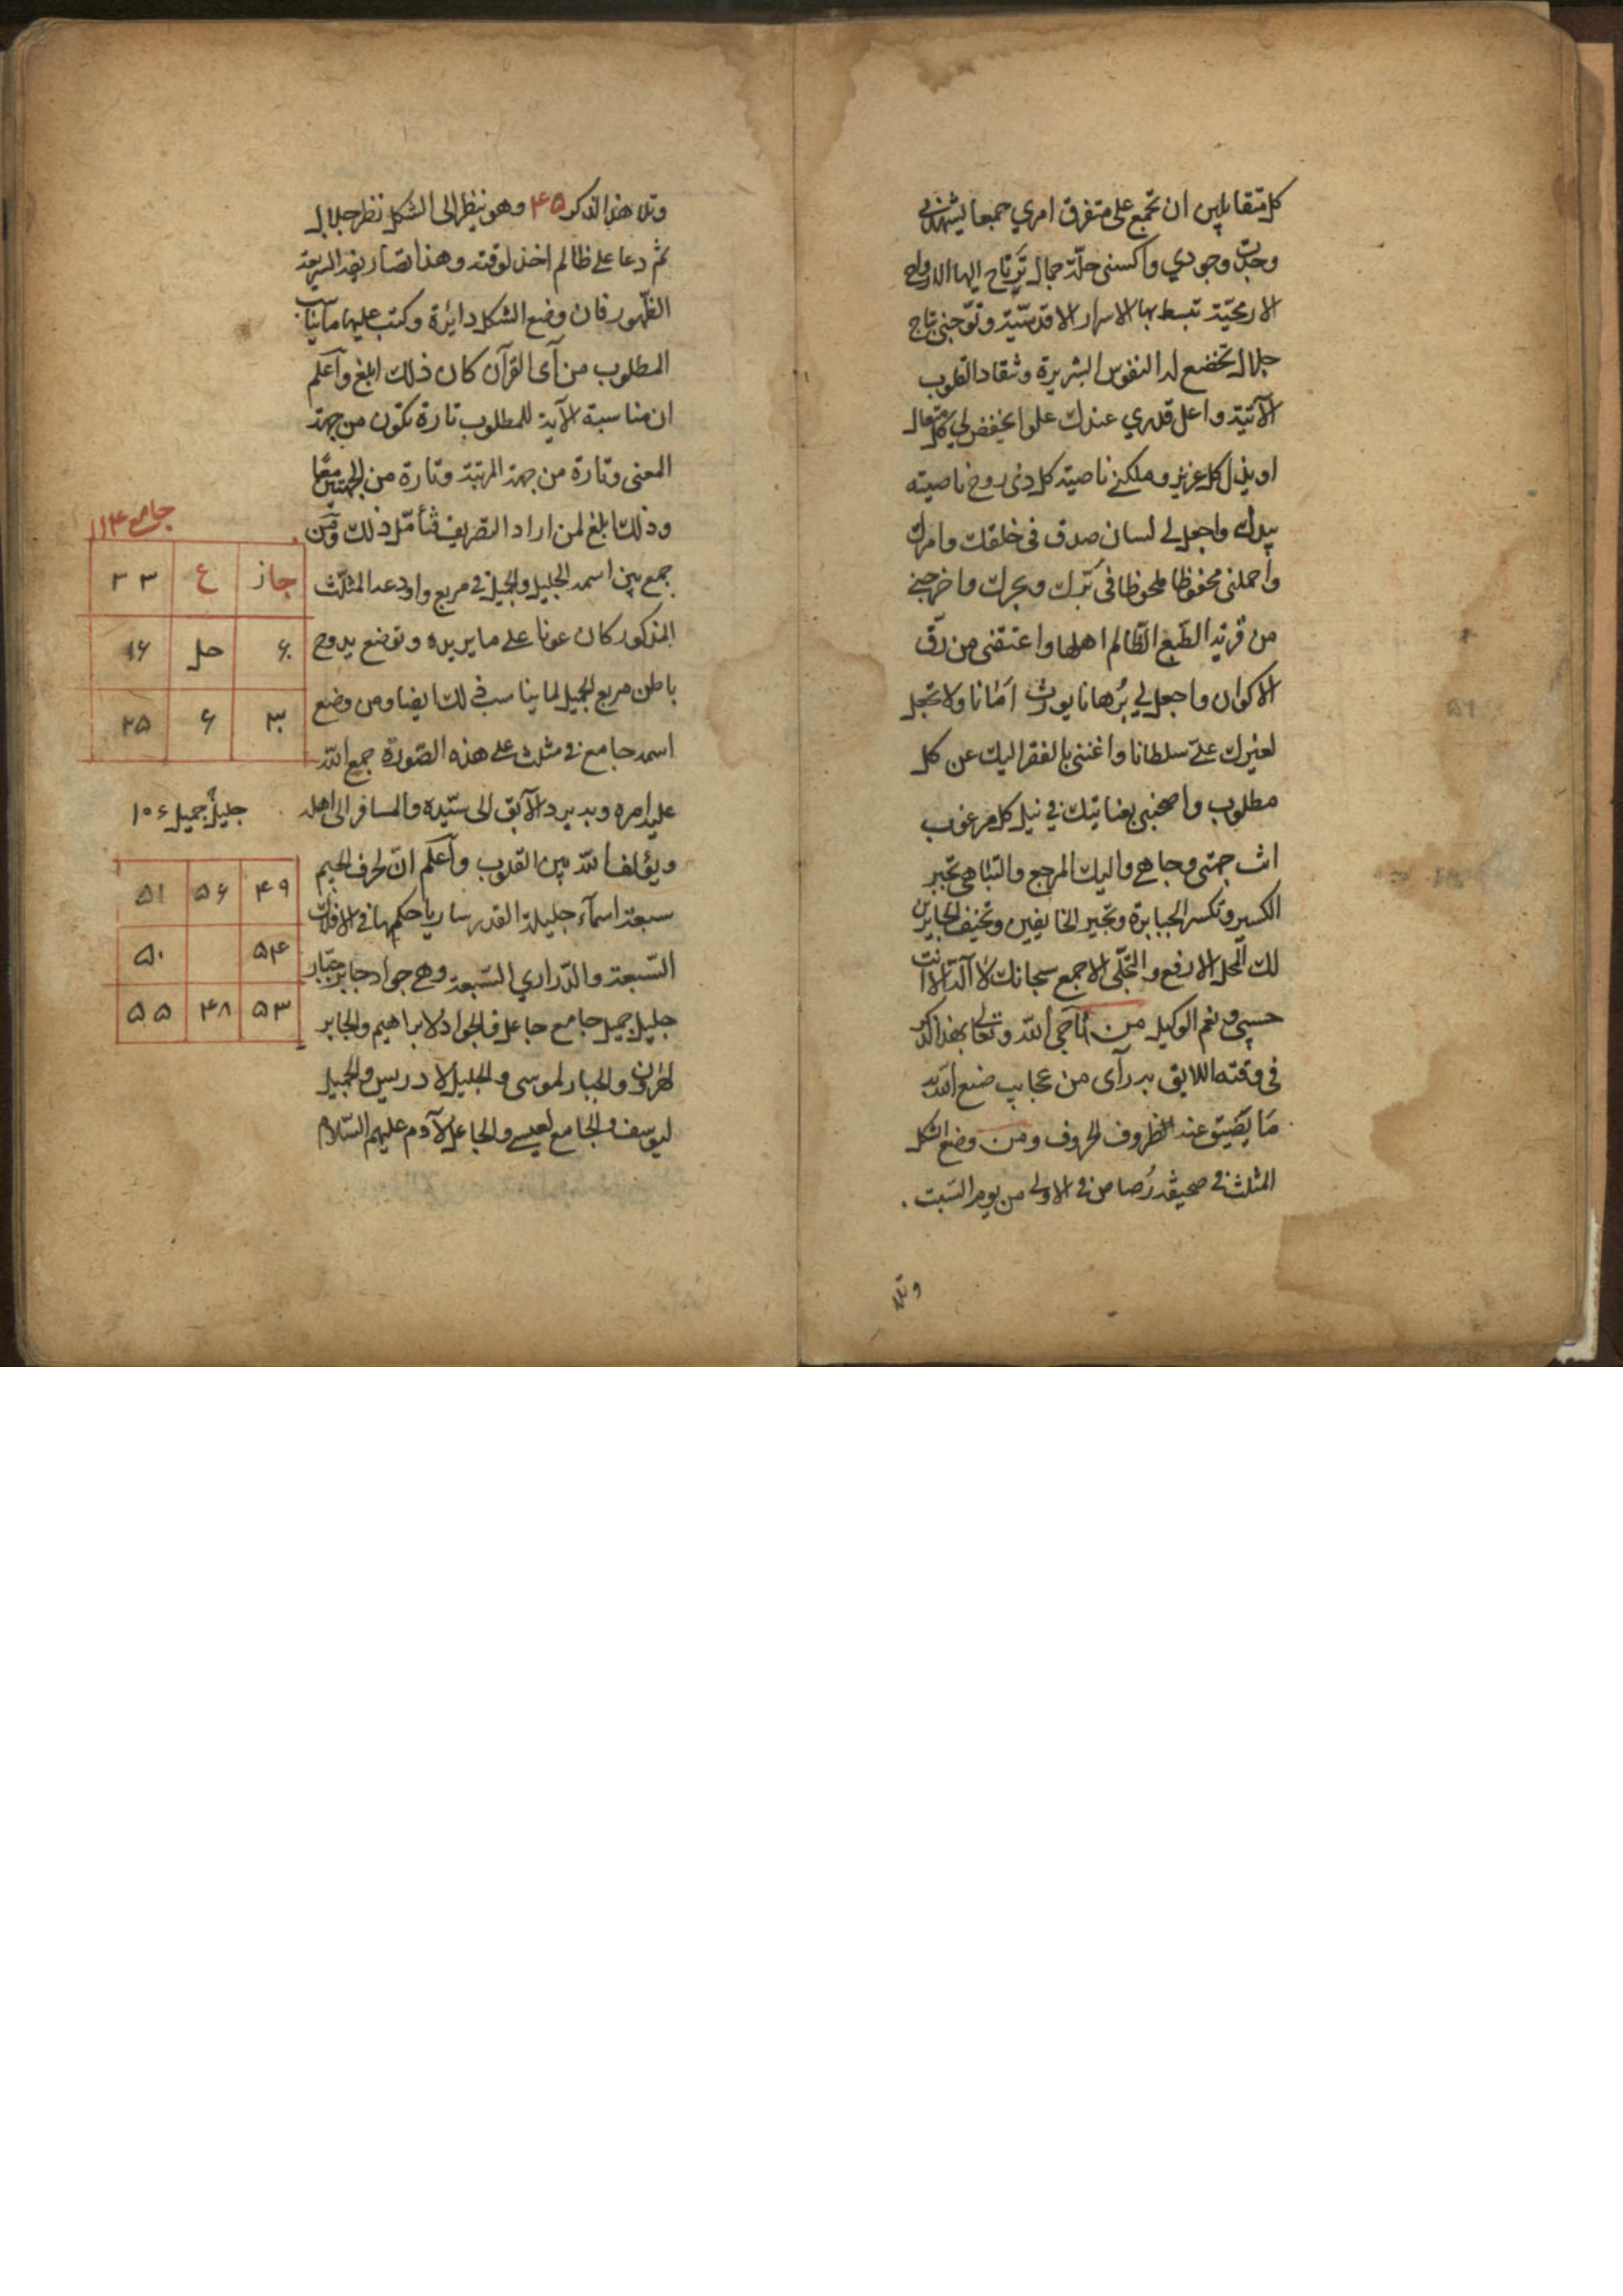 كل متقابلين ان تجمع على متفرق امري جمعا يشهدني
وحدت وجودي واكسني حلّة جمال ترتاح اليها الارواح
الاريحيّة تبسط بها الاسرار الاقدسيّة وتوّجني بتاج
جلال تخضع له النفوس البشريرة وتنقاد القلوب
الآتية واعل قدري عندك علوا يخفض لي كل متعال
او يذل كل عزيز وملكني ناصية كل ذي روح ناصيته
بيدك واجعل لي لسان صدق في خلقك وامرك
واحملني محفوظا ملحوظا في بّرك وبحرك واخرجني
من قرية الطبع الظالم اهلها واعتقني من رقّ
الاكوان واجعل لي بُرهانا يورث امَانا ولا تجعل
لغيرك علىّ سلطانا واغنني بالفقر اليك عن كل
مطلوب واصحبني بعنايتك في نيل كل مرغوب
انت جهتي وجاهي واليك المرجع والتناهي تجبر
الكسير وتكسر الجبابرة وتجير الخايفين وتخيف الجابرين
لك المحل الارفع والتجلّي الاجمع سبحانك لا اله الا انت
حسبي ونعم الوكيل من ناجى الله وتعالى بهذا الذكر
في وقته اللايق به رأى من عجايب صنع الله به
مَا يَضيق عنه الظروف الحروف ومن وضع الشكل
المثلث في صحيفة رُصاص في الاولى من يوم السبت
وتلا
وتلا هذا الذكر ۴۵ وهو ينظر الى الشكل نظر جلال
ثم دعا على ظالم اخذ لوقته وهذا تصاريفه السريعة
الظهور فان وضع الشكل دايرة وكتب عليها ما يناسب
المطلوب من آى القرآن كان ذلك ابلغ وآعلم
ان مناسبة الآية للمطلوب تارة تكون من جهة
المعنى وتارة من جهة المرتبة وتارة من الجهتين معًا
وذلك ابلغ لمن اراد التصريف فتأمّل ذلك ومَن
جمع بين اسمه الجليل والجميل في مربع واودعه المثلّث
المذكور كان عونا على ما يريده وتوضع يدوح
باطن مربع الجميل لما يناسب ذلك ايضا ومن وضع
اسمه جامع في مثلث على هذه الصّورة جمع الله
عليه امره وبه يرد الآبق الى سيّده والمسافر الى اهله
ويؤلف الله بين القلوب وآعلم انّ لحرف الجيم
سبعة اسمآء جليلة القدر ساريا حكمها في الافلاك
السّبعة والدّراري السّبعة وهي جواد جابر جبّار
جليل جميل جامع جاعل فالجواد لابراهيم والجابر
لهرون والجبار لموسى والجليل لادريس والجميل
ليوسف والجامع لعيسى والجاعل لآدم عليهم السّلام
جامع ۱۱۴
جاز ع ۳۳
حل ۱۶
۶ ۳۵
جليل جميل ۱۵۶
۴۹ ۵۶ ۵۱
۵۴ ۵۰
۵۳ ۴۸ ۵۵